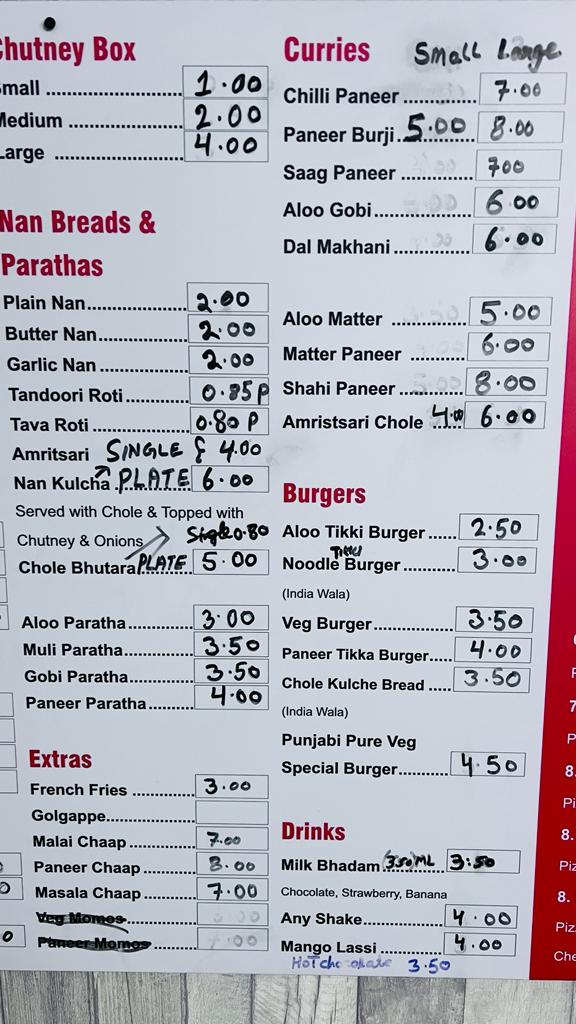 Chutney Box
Small ........................ 1.00
Medium ..................... 2.00
Large ...................... 4.00
Nan Breads &
Parathas
Plain Nan................... 2.00
Butter Nan.................. 2.00
Garlic Nan.................. 2.00
Tandoori Roti .............. 0.85P
Tava Roti .................. 0.80 P
Amritsari SINGLE £ 4.00
Nan Kulcha ........ PLATE 6.00
Served with Chole & Topped with
Chutney & Onions Single 0.80
Chole Bhutara PLATE 5.00
Aloo Paratha............... 3.00
Muli Paratha............... 3.50
Gobi Paratha............... 3.50
Paneer Paratha............. 4.00
Extras
French Fries .............. 3.00
Golgappe...................
Malai Chaap ............... 7.00
Paneer Chaap .............. 8.00
Masala Chaap .............. 7.00
Veg Momos..................
Paneer Momos...............
Curries Small Large
Chilli Paneer ............. 7.00
Paneer Burji.. 5.00 8.00
Saag Paneer ............... 700
Aloo Gobi.................. 6.00
Dal Makhani ............... 6.00
Aloo Matter ............... 5.00
Matter Paneer ............. 6.00
Shahi Paneer .............. 8.00
Amristsari Chole 4.00 6.00
Burgers
Aloo Tikki Burger ...... 2.50
Tikki
Noodle Burger ........... 3.00
(India Wala)
Veg Burger ................ 3.50
Paneer Tikka Burger..... 4.00
Chole Kulche Bread ..... 3.50
(India Wala)
Punjabi Pure Veg
Special Burger............ 4.50
Drinks
Milk Bhadam (350ML 3:50
Chocolate, Strawberry, Banana
Any Shake................. 4.00
Mango Lassi .............. 4.00
Hot chocolate 3.50